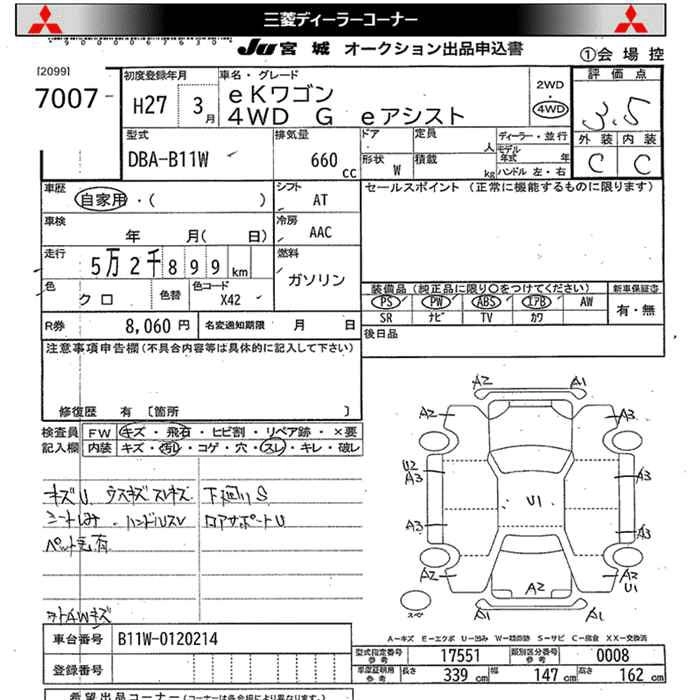 三菱ディーラーコーナー
JU 宮城 オークション出品申込書
①会場控
[2099]
7007
初度登録年月
H27 3月
車名・グレード
eKワゴン
4WD G eアシスト
2WD
・
4WD
評価点
3.5
外装 内装
C C
型式
DBA-B11W
排気量
660 cc
ドア 定員 人
形状 W 積載 kg
ディーラー・並行
モデル年式 年
ハンドル 左・右
車歴
自家用・( )
シフト
AT
セールスポイント (正常に機能するものに限ります)
車検
年 月( 日)
冷房
AAC
走行
5万2千899 km
燃料
ガソリン
色
クロ
色替
色コード
X42
装備品 (純正品に限り○をつけてください)
新車保証書
PS PW ABS エアB AW
SR ナビ TV カワ
有・無
R券 8,060円 名変通知期限 月 日
後日品
注意事項申告欄(不具合内容等は具体的に記入して下さい)
修復歴 有 [箇所 ]
検査員 FW キズ・飛石・ヒビ割・リペア跡・×要
記入欄 内装 キズ・汚れ・コゲ・穴・スレ・キレ・破レ
キズU ウスキズ スレキズ 下廻りS
シートしみ ・ハンドルスレ ロアサポートU
ペット毛有
ヲトAWキズ
A2 A1
A2 A3
U2
A3 A3
A3 A3
U1
A2 A2
U1
A2
A1 A1
A-キズ E-エクボ U-凹み W-補修跡 S-サビ C-腐食 XX-交換済
車台番号 B11W-0120214
登録番号
型式指定番号 参考 17551 類別区分番号 参考 0008
車庫証明用 参考 長さ 339cm 幅 147cm 高さ 162cm
希望出品コーナー(コーナーは各会場により異なります。)